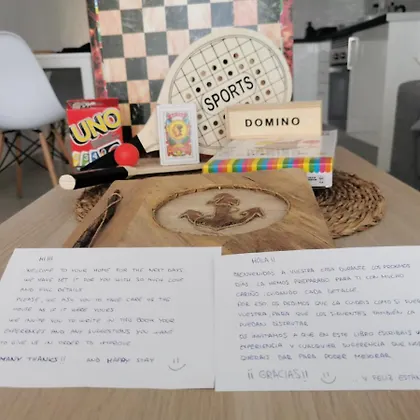 SPORTS
DOMINO
UNO
HI!!
WELCOME TO YOUR HOME FOR THE NEXT DAYS
WE HAVE SET IT FOR YOU WITH SO MUCH LOVE
AND FULL DETAILS
PLEASE, WE ASK YOU TO TAKE CARE OF THE
HOUSE AS IF IT WERE YOURS
WE INVITE YOU TO WRITE IN THIS BOOK YOUR
EXPERIENCE AND ANY SUGGESTIONS YOU WANT
TO GIVE US IN ORDER TO IMPROVE
MANY THANKS!! AND HAPPY STAY
HOLA!!
BIENVENIDOS A VUESTRA CASA DURANTE LOS PRÓXIMOS
DÍAS. LA HEMOS PREPARADO PARA TI CON MUCHO
CARIÑO, CUIDANDO CADA DETALLE.
POR ESO OS PEDIMOS QUE LA CUIDÉIS COMO SI FUERA
VUESTRA, PARA QUE LOS SIGUIENTES TAMBIÉN LA
PUEDAN DISFRUTAR.
OS INVITAMOS A QUE EN ESTE LIBRO ESCRIBÁIS
EXPERIENCIA Y CUALQUIER SUGERENCIA QUE NOS
QUERÁIS DAR PARA PODER MEJORAR.
¡¡GRACIAS!! Y FELIZ ESTAN